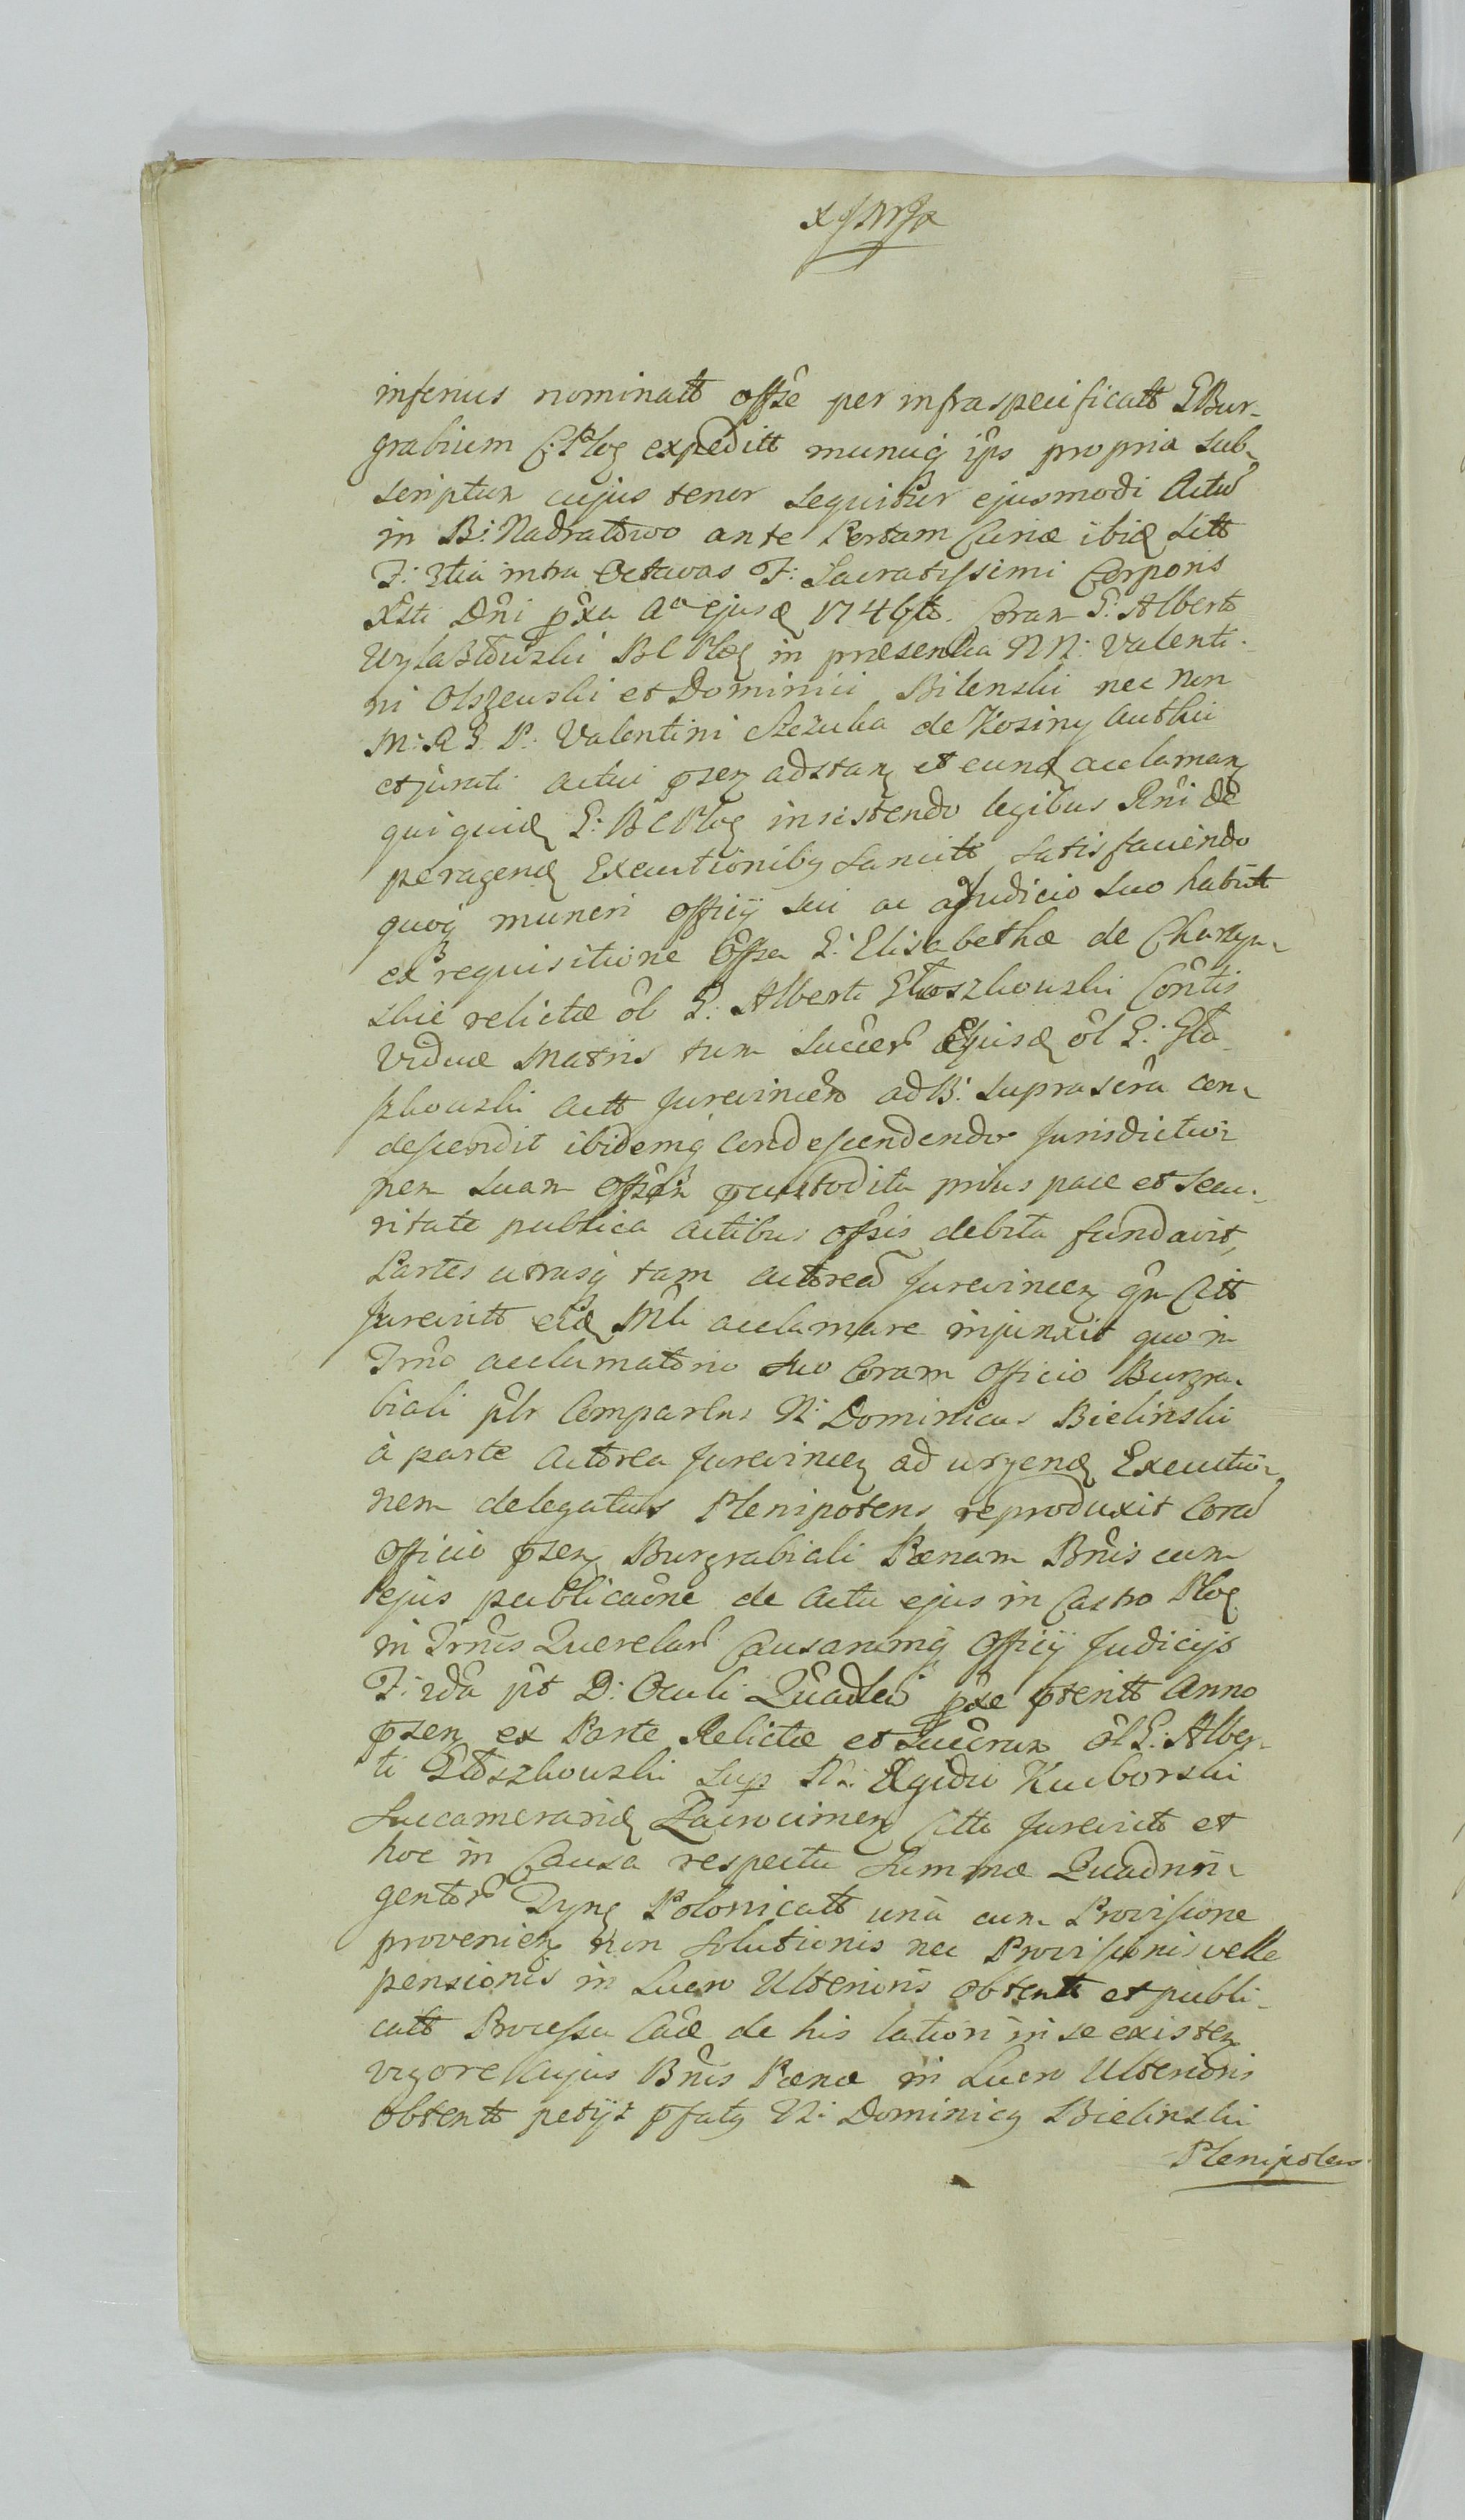 inferius nominatt offse per infraspecificatt GBur-
grabium C: Ploc expeditt manuq ips propria sub-
scriptum cujus tenor sequitur ejusmodi Actu
in B: Nadratowo ante Portam Curiæ ibid sitt
F: 3tia intra Octavas F: Sacratissimi Corporis
Xsti Dni pxa Ao ejusd 1746to. Coram G: Alberto
BCPloc in præsentia NN: Valenti-
ni Olszewski et Dominici Bilenski nec non
M: R G. P: Valentini de Kosiny
et jurati actui psen adstan et eund acclaman
qui quid G: BCPloc insistendo legibus Rni de
peragend Executionibq sancitt satisfaciendo
quoq muneri officij sui ac Judicio suo habitt
ex requisitione offsa G: Elisabethæ de
skie relictæ ol G: Alberti Głoszkowski Contis
viduæ Matris tum succer Ejusd ol G: Gło-
szkowski actt Jurevincen ad B: suprascra con-
descendit ibidemq condescendendo Jurisdictio-
nem suam offsm pcustodita prius pace et secu-
ritate publica actibus offsis debita fundavit,
Partes utrasq tam actorea Jurevincen qm Citt
Jurevictt eid Mli acclamare injunxit quo in
Trno acclamatorio suo Coram Officio Burgra-
biali plr Comparens N: Dominicus Bielinski
à parte actorea Jurevincen ad urgend Executio-
nem delegatus Plenipotens reproduxit Cora
Officio psen Burgrabiali Pænam Bnis cum
ejus publicaone de Actu ejus in Castro Ploc
in Trnis Querelar Causarumq Officij Judicijs
F: 2da pt D: Oculi Quadlem pxe pteritt Anno
psen ex Parte Relictæ et Succrum ol G: Alber-
ti Głoszkowski Sup N: Egidii Kucborski
Succamerarid Zacrocimen Citto Jurevicto et
hoc in Causa respectu Summæ Quadrin-
gentor Tynf Polonicatt unà cum Provisione
provenien non solutionis nec Provisionis velle
pensionis in Lucro Ulterioris obtentt et publi-
catt Processu Caæ de his lation in se existen
vigore cujus Bnis Pænæ in Lucro Ulterioris
obtentt petijt pfatq N: Dominicq Bielinski
Plenipotens